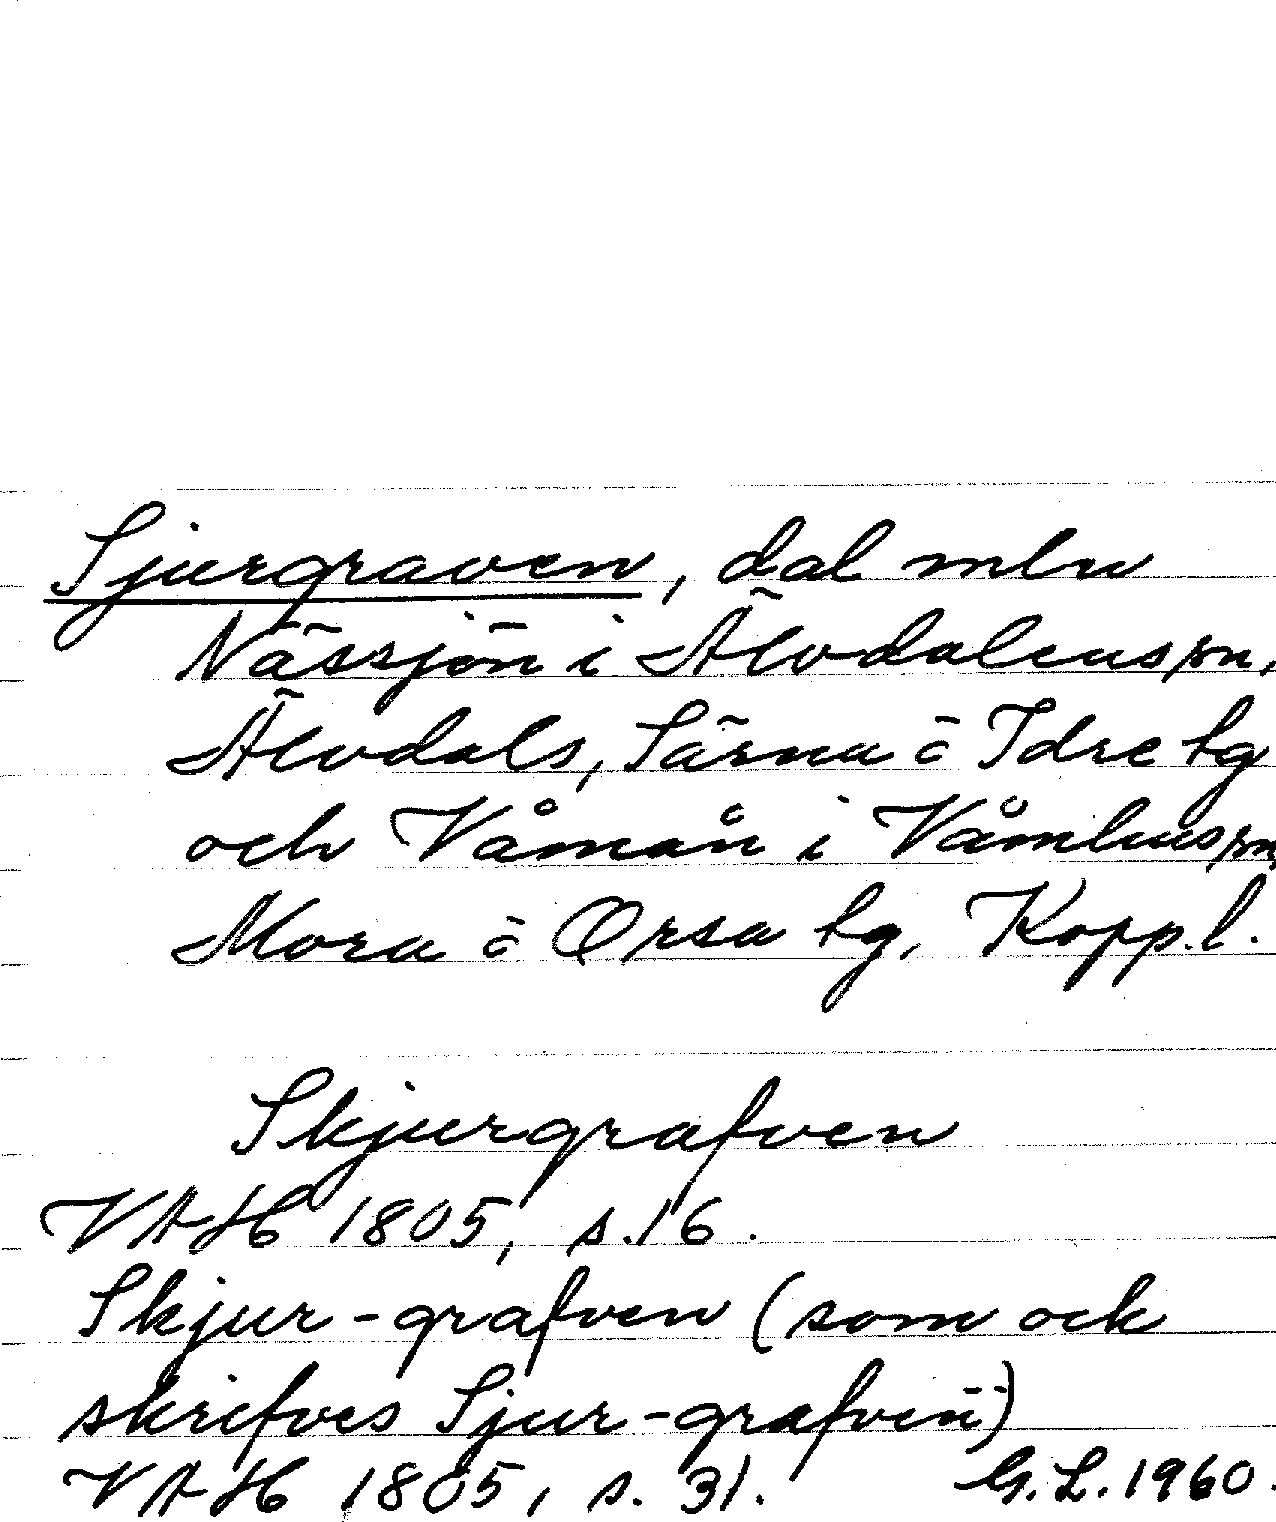 Sjurgraven, dal mln
Nässjön i Älvdalens sn,
Älvdals, Särna o Idre tg
och Våmån i Våmhus sn,
Mora o Orsa tg, Kopp.l.
Skjurgrafven
VAH 1805, s.16.
Skjur-grafven (som ock
skrifves Sjur-grafven)
VAH 1805, s. 31. G.L.1960.